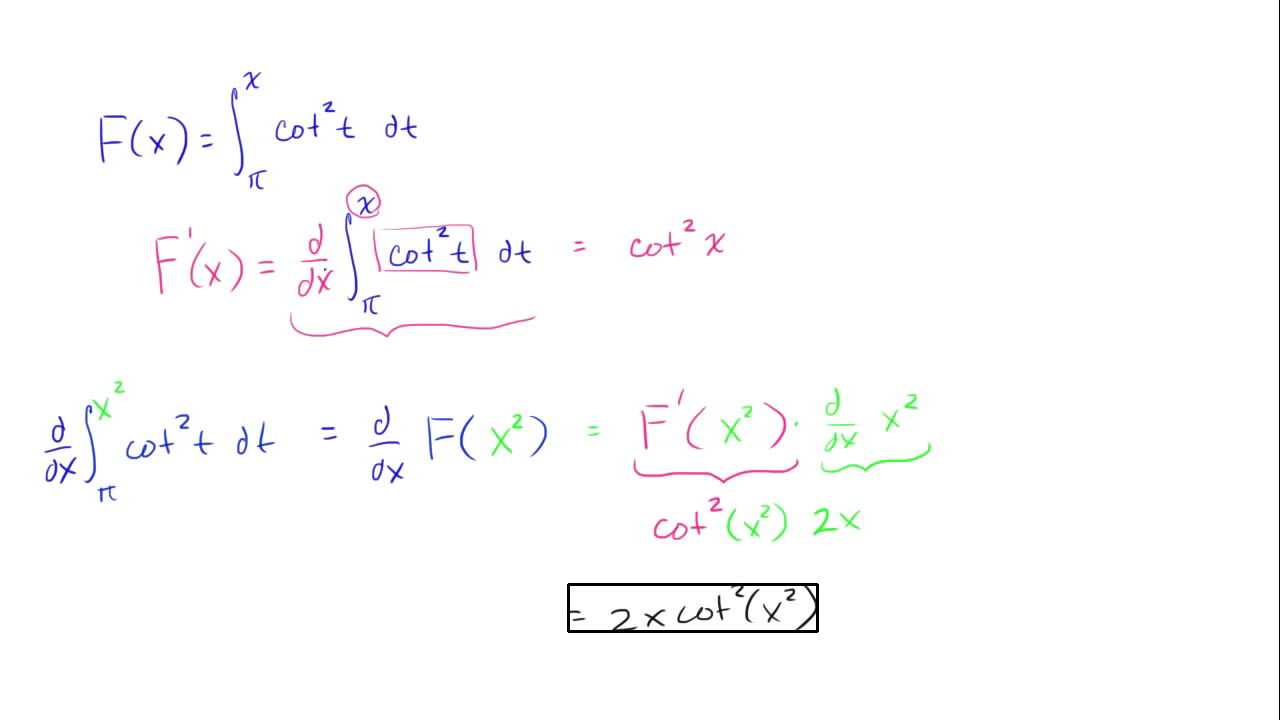 F(x) = ∫_π^x cot²t dt
F'(x) = d/dx ∫_π^x cot²t dt = cot²x
d/dx ∫_π^{x²} cot²t dt = d/dx F(x²) = F'(x²) · d/dx x²
cot²(x²) 2x
= 2x cot²(x²)